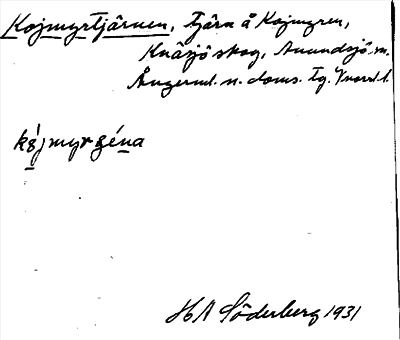 Kojmyrtjärnen, tjärn å Kojmyren,
Knäsjö skog, Anundsjö s:n.
Ångerml. n. doms. tg. Västernl. l.
kåjmyrɟéna
H A Söderberg 1931